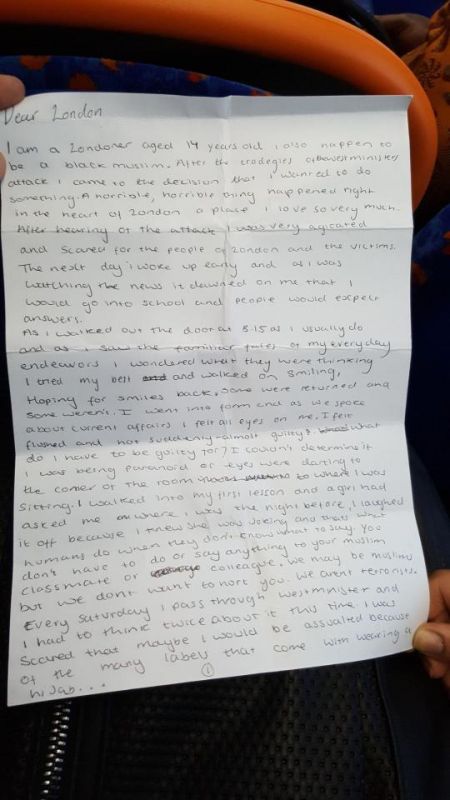 Dear London
I am a Londoner aged 14 years old i also happen to
be a black muslim. After the tradegies of the westminister
attack i came to the decision that i wanted to do
something. A horrible, horrible thing happened right
in the heart of London a place i love so very much.
After hearing of the attack I was very agitated
and scared for the people of London and the victims.
The next day i woke up early and as i was
watching the news it dawned on me that I
would go into school and people would expect
answers.
As i walked out the door at 8:15 as i usually do
and as i saw the familiar faces of my everyday
endeavors i wondered what they were thinking
I tried my best and walked on smiling,
Hoping for smiles back, some were returned and
some weren't. I went into form and as we spoke
about current affairs I felt all eyes on me. I felt
flushed and hot suddenly-almost guilty? what
do i have to be guilty for? I couldn't determine if
I was being paranoid or eyes were darting to
the corner of the room to where I was
sitting. I walked into my first lesson and a girl had
asked me where i was the night before, I laughed
it off because i knew she was joking and that's what
humans do when they don't know what to say. You
don't have to do or say anything to your muslim
classmate or colleague. We may be muslims
but we don't want to hurt you. We arent terrorists.
Every Saturday i pass through westminister and
I had to think twice about it this time. I was
scared that maybe I would be assualted because
of the many labels that come with wearing a
hijab...
1